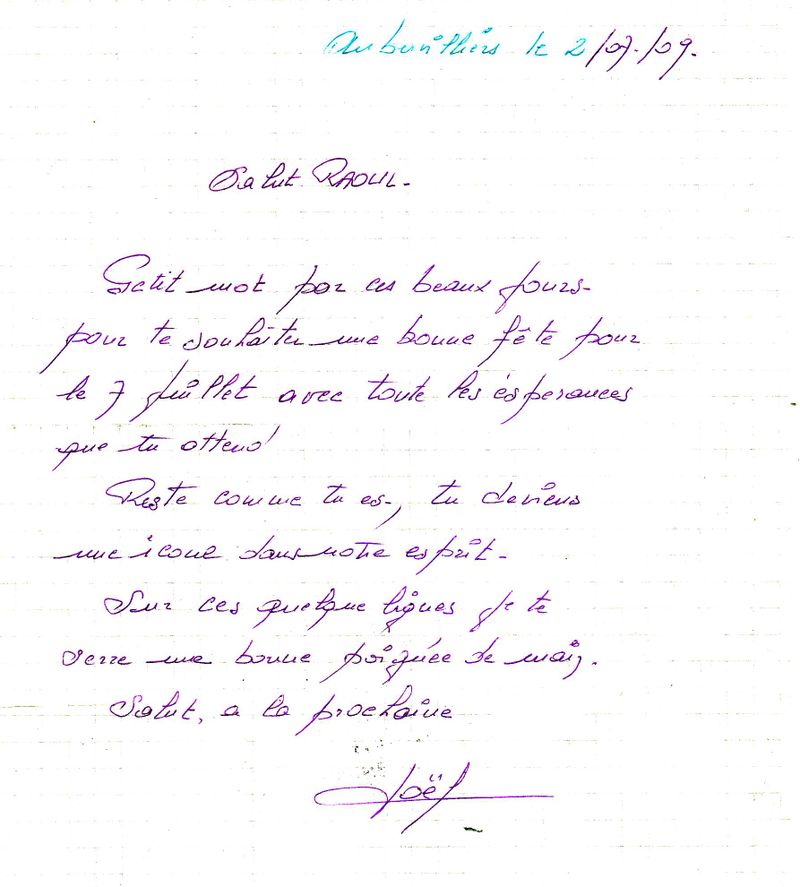 Aubervilliers le 2/07/09.
Salut RAOUL.
Petit mot par ces beaux jours
pour te souhaiter une bonne fête pour
le 7 Juillet avec toute les espérances
que tu attend
Reste comme tu es, tu deviens
une icone dans notre esprit.
Sur ces quelque lignes je te
serre une bonne poignée de main.
Salut, a la prochaine
Joël